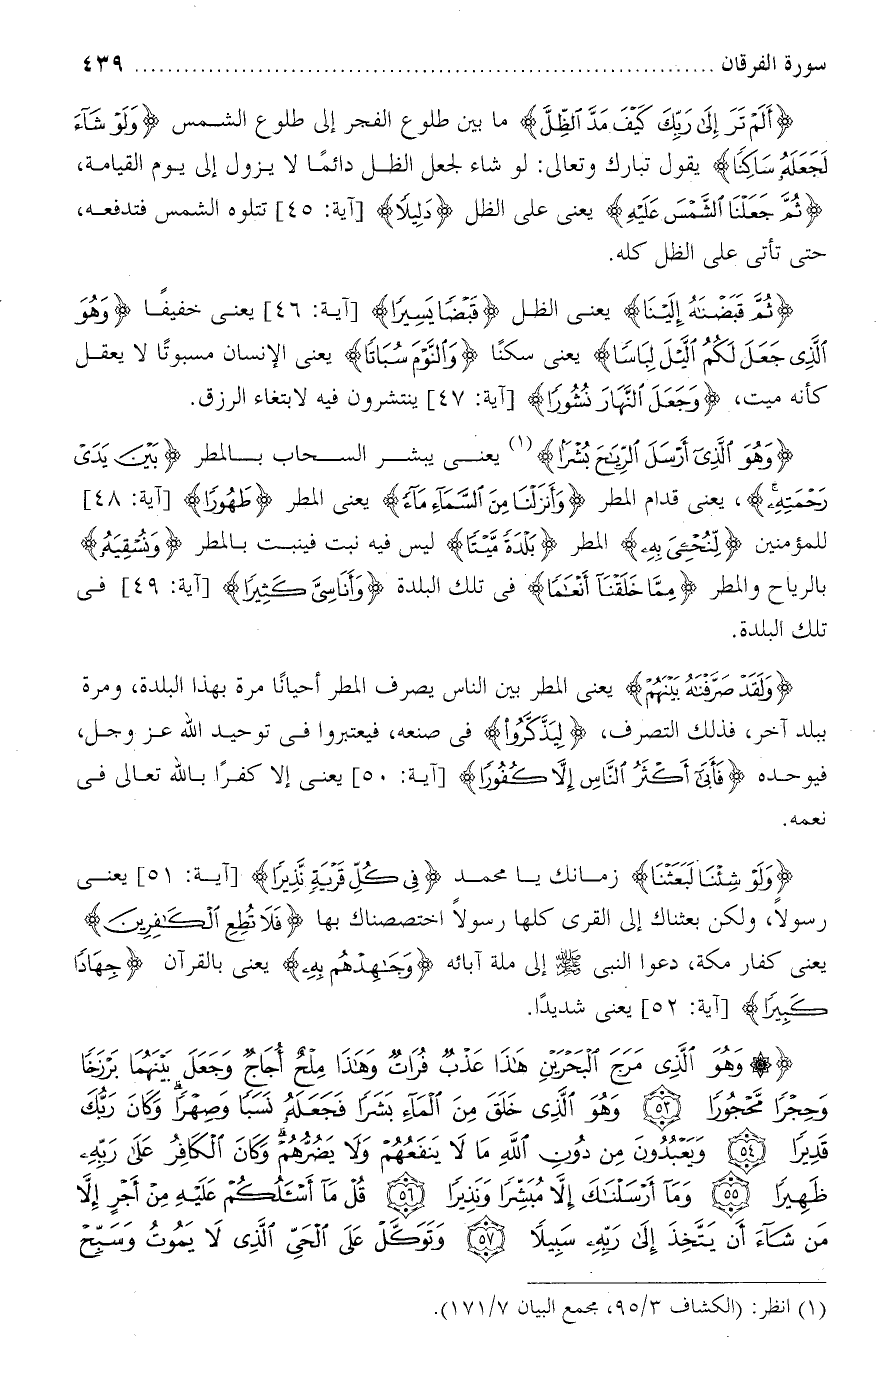 سورة الفرقان ........................................................................ ٤٣٩
﴿أَلَمْ تَرَ إِلَىٰ رَبِّكَ كَيْفَ مَدَّ ٱلظِّلَّ﴾ ما بين طلوع الفجر إلى طلوع الشمس ﴿وَلَوْ شَآءَ
لَجَعَلَهُۥ سَاكِنًا﴾ يقول تبارك وتعالى: لو شاء لجعل الظل دائمًا لا يزول إلى يوم القيامة،
﴿ثُمَّ جَعَلْنَا ٱلشَّمْسَ عَلَيْهِ﴾ يعنى على الظل ﴿دَلِيلًا﴾ [آية: ٤٥] تتلوه الشمس فتدفعه،
حتى تأتى على الظل كله.
﴿ثُمَّ قَبَضْنَٰهُ إِلَيْنَا﴾ يعنى الظل ﴿قَبْضًا يَسِيرًا﴾ [آية: ٤٦] يعنى خفيفًا ﴿وَهُوَ
ٱلَّذِى جَعَلَ لَكُمُ ٱلَّيْلَ لِبَاسًا﴾ يعنى سكنًا ﴿وَٱلنَّوْمَ سُبَاتًا﴾ يعنى الإنسان مسبوتًا لا يعقل
كأنه ميت، ﴿وَجَعَلَ ٱلنَّهَارَ نُشُورًا﴾ [آية: ٤٧] ينتشرون فيه لابتغاء الرزق.
﴿وَهُوَ ٱلَّذِىٓ أَرْسَلَ ٱلرِّيَٰحَ بُشْرًۢا﴾(١) يعنى يبشر السحاب بالمطر ﴿بَيْنَ يَدَىْ
رَحْمَتِهِۦ﴾، يعنى قدام المطر ﴿وَأَنزَلْنَا مِنَ ٱلسَّمَآءِ مَآءً﴾ يعنى المطر ﴿طَهُورًا﴾ [آية: ٤٨]
للمؤمنين ﴿لِّنُحْـِۧىَ بِهِۦ﴾ المطر ﴿بَلْدَةً مَّيْتًا﴾ ليس فيه نبت فينبت بالمطر ﴿وَنُسْقِيَهُۥ﴾
بالرياح والمطر ﴿مِمَّا خَلَقْنَآ أَنْعَٰمًا﴾ فى تلك البلدة ﴿وَأَنَاسِىَّ كَثِيرًا﴾ [آية: ٤٩] فى
تلك البلدة.
﴿وَلَقَدْ صَرَّفْنَٰهُ بَيْنَهُمْ﴾ يعنى المطر بين الناس يصرف المطر أحيانًا مرة بهذا البلدة، ومرة
ببلد آخر، فذلك التصرف، ﴿لِيَذَّكَّرُوا۟﴾ فى صنعه، فيعتبروا فى توحيد الله عز وجل،
فيوحده ﴿فَأَبَىٰٓ أَكْثَرُ ٱلنَّاسِ إِلَّا كُفُورًا﴾ [آية: ٥٠] يعنى إلا كفرًا بالله تعالى فى
نعمه.
﴿وَلَوْ شِئْنَا لَبَعَثْنَا﴾ زمانك يا محمد ﴿فِى كُلِّ قَرْيَةٍ نَّذِيرًا﴾ [آية: ٥١] يعنى
رسولاً، ولكن بعثناك إلى القرى كلها رسولاً اختصصناك بها ﴿فَلَا تُطِعِ ٱلْكَٰفِرِينَ﴾
يعنى كفار مكة، دعوا النبى ﷺ إلى ملة آبائه ﴿وَجَٰهِدْهُم بِهِۦ﴾ يعنى بالقرآن ﴿جِهَادًا
كَبِيرًا﴾ [آية: ٥٢] يعنى شديدًا.
﴿۞ وَهُوَ ٱلَّذِى مَرَجَ ٱلْبَحْرَيْنِ هَٰذَا عَذْبٌ فُرَاتٌ وَهَٰذَا مِلْحٌ أُجَاجٌ وَجَعَلَ بَيْنَهُمَا بَرْزَخًا
وَحِجْرًا مَّحْجُورًا ٥٣ وَهُوَ ٱلَّذِى خَلَقَ مِنَ ٱلْمَآءِ بَشَرًا فَجَعَلَهُۥ نَسَبًا وَصِهْرًا ۗ وَكَانَ رَبُّكَ
قَدِيرًا ٥٤ وَيَعْبُدُونَ مِن دُونِ ٱللَّهِ مَا لَا يَنفَعُهُمْ وَلَا يَضُرُّهُمْ ۗ وَكَانَ ٱلْكَافِرُ عَلَىٰ رَبِّهِۦ
ظَهِيرًا ٥٥ وَمَآ أَرْسَلْنَٰكَ إِلَّا مُبَشِّرًا وَنَذِيرًا ٥٦ قُلْ مَآ أَسْـَٔلُكُمْ عَلَيْهِ مِنْ أَجْرٍ إِلَّا
مَن شَآءَ أَن يَتَّخِذَ إِلَىٰ رَبِّهِۦ سَبِيلًا ٥٧ وَتَوَكَّلْ عَلَى ٱلْحَىِّ ٱلَّذِى لَا يَمُوتُ وَسَبِّحْ
(١) انظر: (الكشاف ٩٥/٣، مجمع البيان ١٧١/٧).